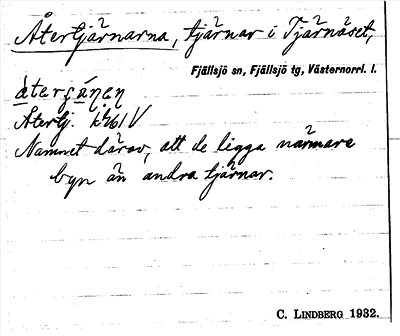 Återtjärnarna, tjärnar i Tjärnäset,
Fjällsjö sn, Fjällsjö tg, Västernorrl. l.
Återtj.
Namnet därav, att de ligga närmare
byn än andra tjärnar.
C. LINDBERG 1932.